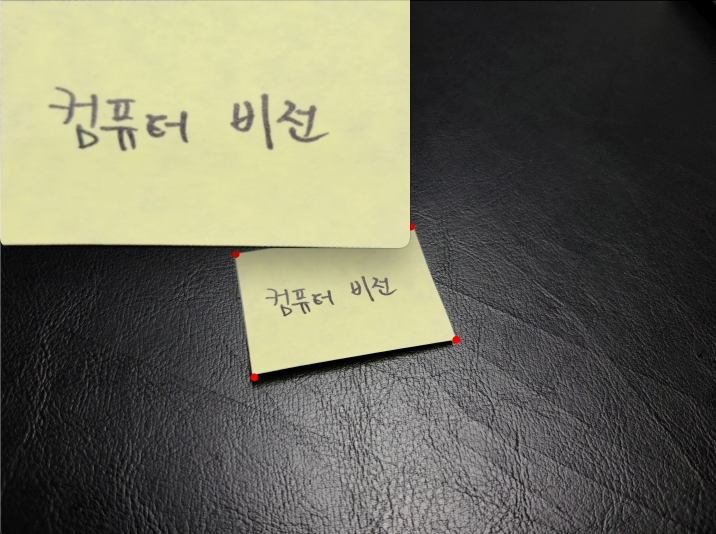 컴퓨터 비전
컴퓨터 비전